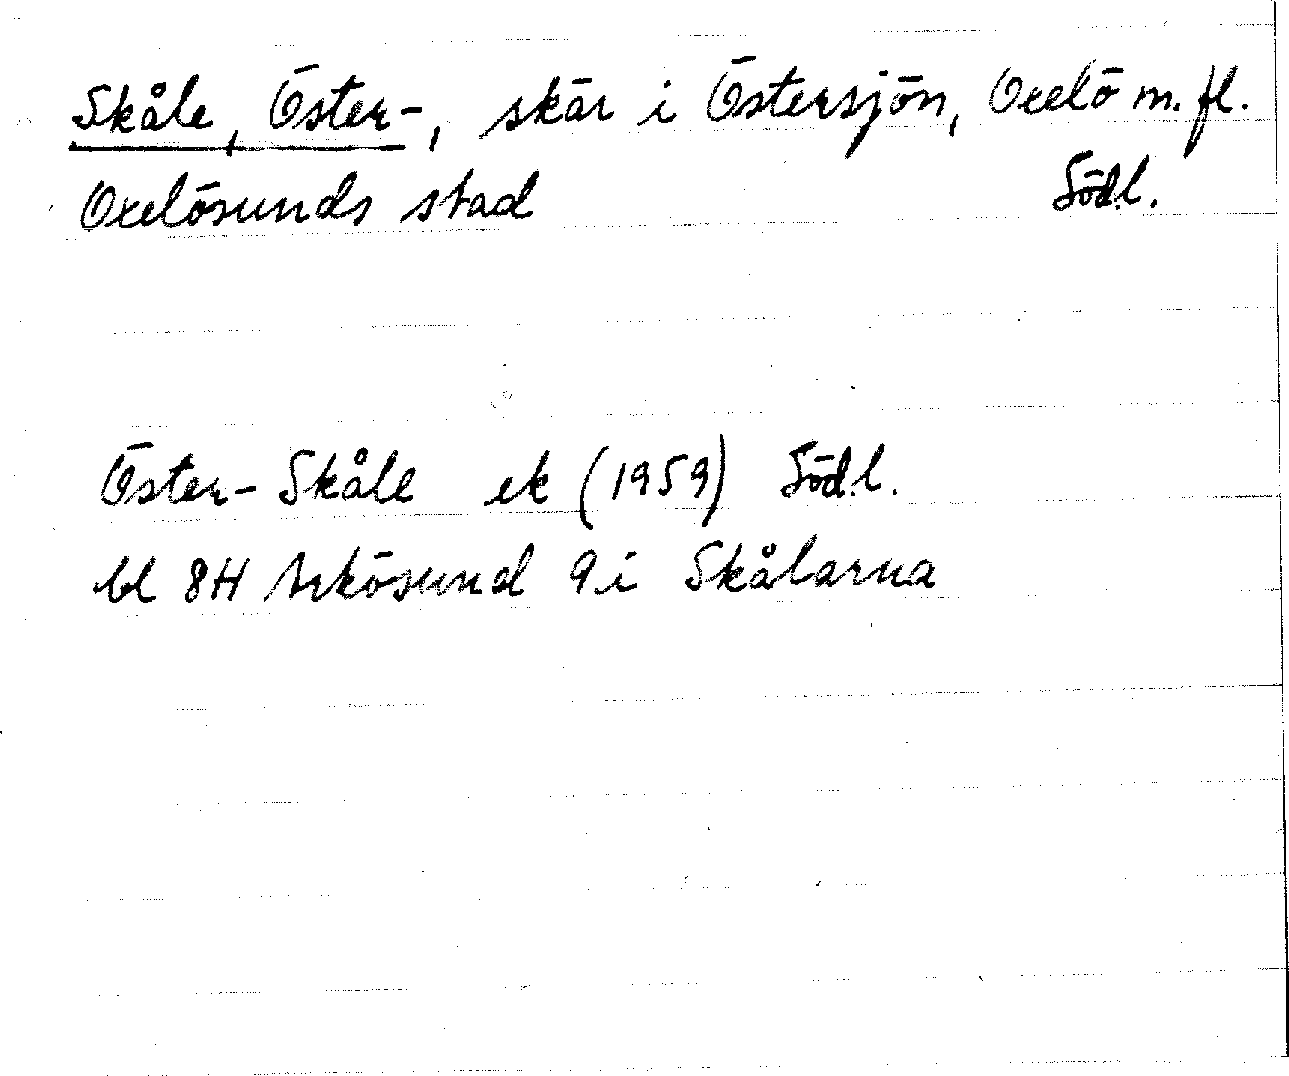 Skåle, Öster-, skär i Östersjön, Oxelö m. fl.
Oxelösunds stad Södl.
Öster-Skåle ek (1959) Södl.
bl 8H Arkösund 9i Skålarna